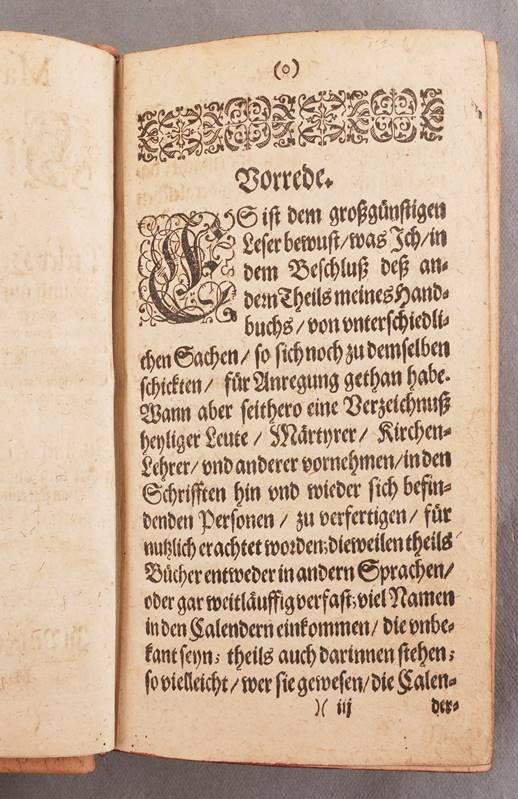 (o)
Vorrede.
ES ist dem großgünstigen
Leser bewust/was Ich/in
dem Beschluß deß an-
dern Theils meines Hand-
buchs/von vnterschiedli-
chen Sachen/ so sich noch zu demselben
schickten/ für Anregung gethan habe.
Wann aber seithero eine Verzeichnuß
heyliger Leute/ Märtyrer/ Kirchen-
Lehrer/vnd anderer vornehmen/in den
Schrifften hin vnd wieder sich befin-
denden Personen/ zu verfertigen/ für
nutzlich erachtet worden;dieweilen theils
Bücher entweder in andern Sprachen/
oder gar weitläuffig verfast; viel Namen
in den Calendern einkommen/ die vnbe-
kant seyn; theils auch darinnen stehen;
so vielleicht/wer sie gewesen/die Calen-
)( iij der-